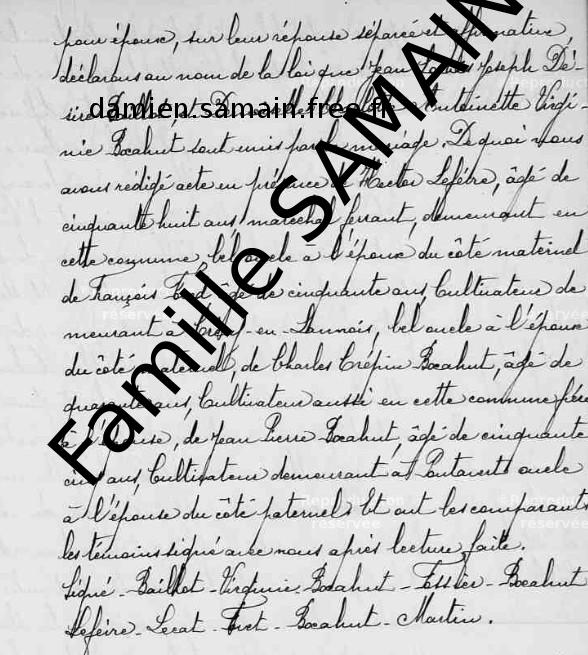 pour épouse, sur leur réponse séparée et affirmative,
déclarons au nom de la loi que Jean Louis Joseph Dé-
siré et Antoinette Virgi-
nie Bocahut sont unis par le mariage. De quoi nous
avons rédigé acte en présence de Hector Lefèvre, âgé de
cinquante huit ans maréchal ferrant, demeurant en
cette commune, bel oncle à l'épouse du côté maternel
de François âgé de cinquante ans, Cultivateur de
meurant à -en-Laonnois, bel oncle à l'épouse
du côté maternel, de Charles Crépin Bocahut, âgé de
quarante ans, Cultivateur aussi en cette commune frère
à l'épouse, de Jean Pierre Bocahut, âgé de cinquante
cinq ans, Cultivateur demeurant à Pontavert oncle
à l'épouse du côté paternel. Et ont les comparants
les témoins signé avec nous après lecture faite.
Signé - Baillot - Virginie Bocahut - Tassier - Bocahut
Lefèvre - Lecat - - Bocahut - Martin.
damien.samain.free.fr
Famille SAMAIN
Reproduction
réservée